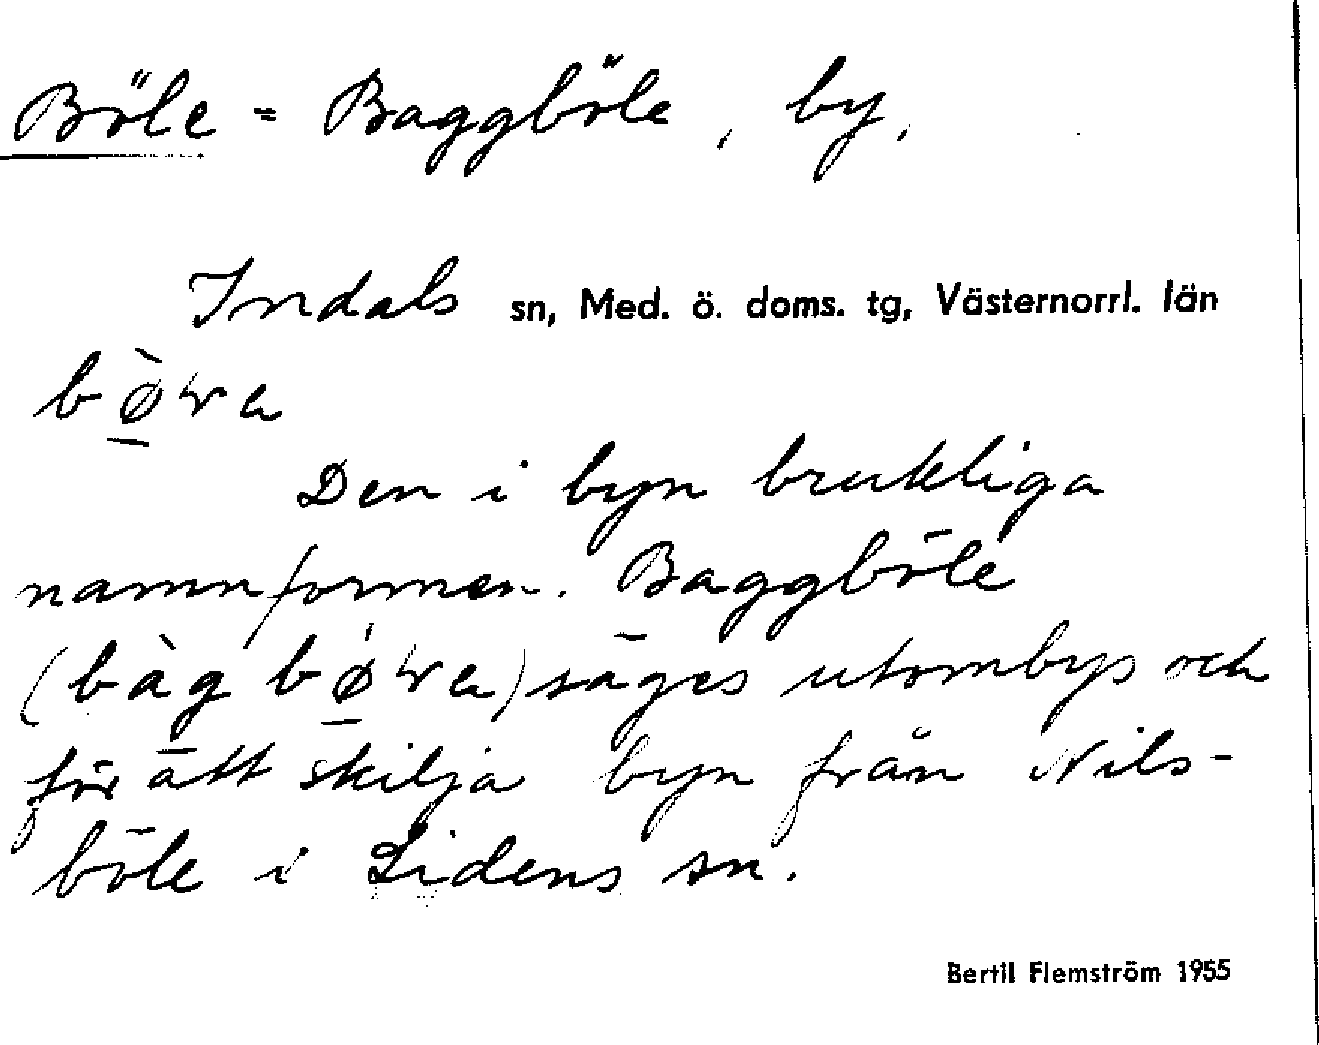 Böle = Baggböle, by,
Indals sn, Med. ö. doms. tg, Västernorrl. län
Den i byn brukliga
namnformen. Baggböle
säges utombys och
för att skilja byn från Nils-
böle i Lidens sn.
Bertil Flemström 1955